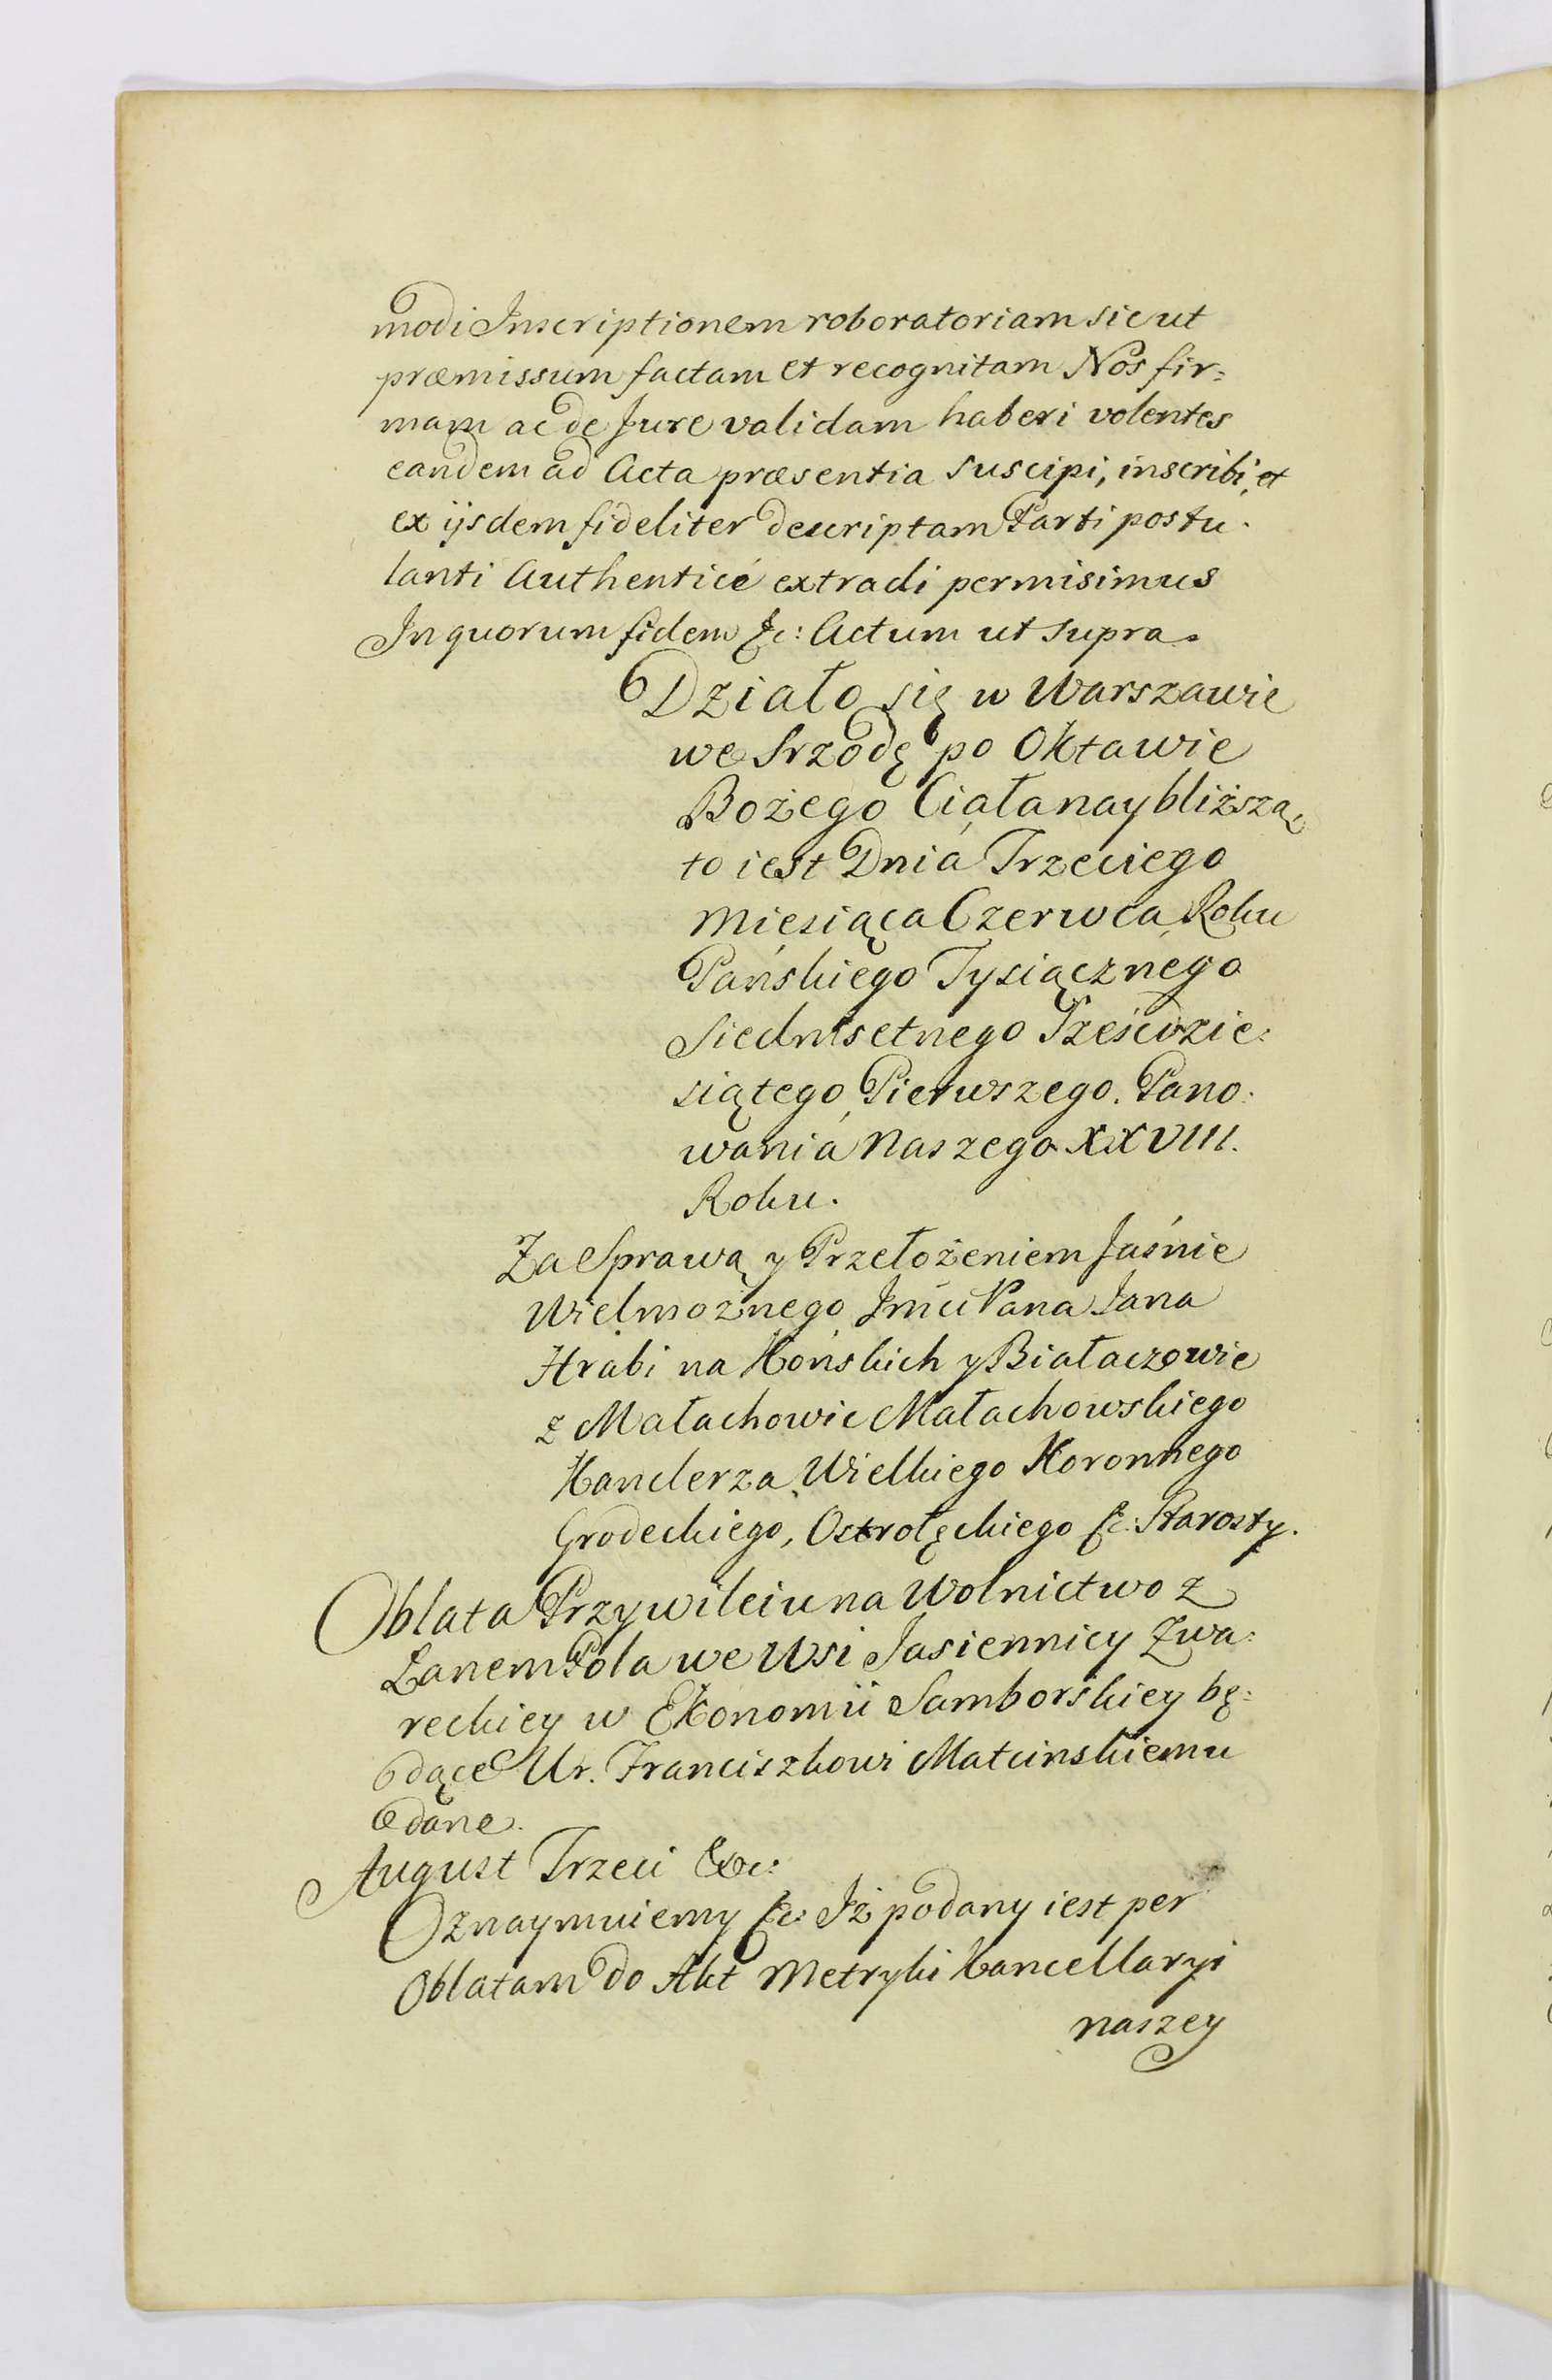 modi Inscriptionem roboratoriam sicut
præmissum factam et recognitam Nos fir=
mam ac de Jure validam haberi volentes
eandem ad Acta præsentia suscipi, inscribi, et
ex ijsdem fideliter descriptam Parti postu-
lanti Authenticé extradi permisimus
In quorum fidem &c: Actum ut supra.
Działo się w Warszawie
we Srzodę po Oktawie
Bożego Ciała naybliższą
to iest Dnia Trzeciego
Miesiąca Czerwca Roku
Pańskiego Tysiącznego
Siedmsetnego Sześćdzie:
siątego Pierwszego. Pano:
wania Naszego XXVIII.
Roku.
Za Sprawą y Przełożeniem Jaśnie
Wielmożnego Jmći Pana Jana
Hrabi na Końskich y Białaczowie
z Małachowic Małachowskiego
Kanclerza Wielkiego Koronnego
Grodeckiego, Ostrołęckiego &c: Starosty.
Oblata Przywileiu na Wolnictwo z
Łanem Pola we Wsi Jasiennicy Zwa:
reckiey w Ekonomii Samborskiey bę:
dące Ur. Franciszkowi Matcinskiemu
dane.
August Trzeci &c:
Oznaymuiemy &c: Iż podany iest per
Oblatam do Akt Metryki Kancellaryi
naszey